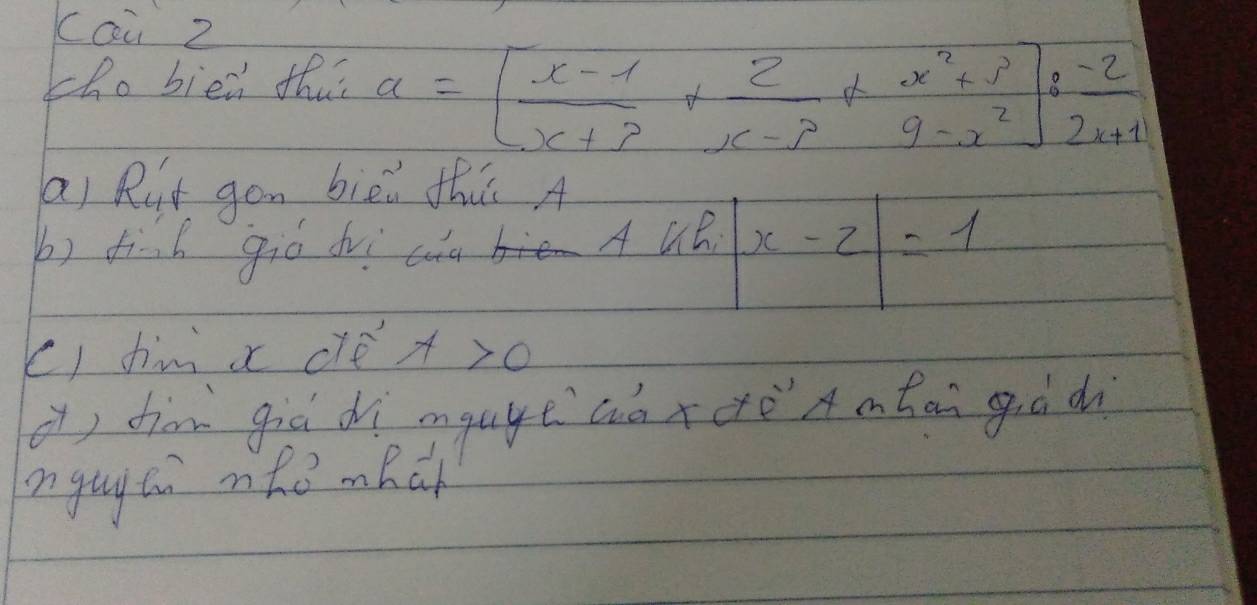 Câu 2
cho biểu thức a = [(x-1)/(x+3) + 2/(x-3) + (x²+3)/(9-x²)] : (-2)/(2x+1)
a) Rút gọn biểu thức A
b) tính giá trị của A khi |x - 2| = 1
c) tìm x để A > 0
d) tìm giá trị nguyên của x để A nhận giá trị
nguyên nhỏ nhất